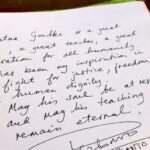 atma Gandhi is a great
, a great teacher, a great
ration for all humanity.
has been my inspiration in
fight for justice, freedom
human dignity.
May his soul be at res
and may his teaching
remain eternal